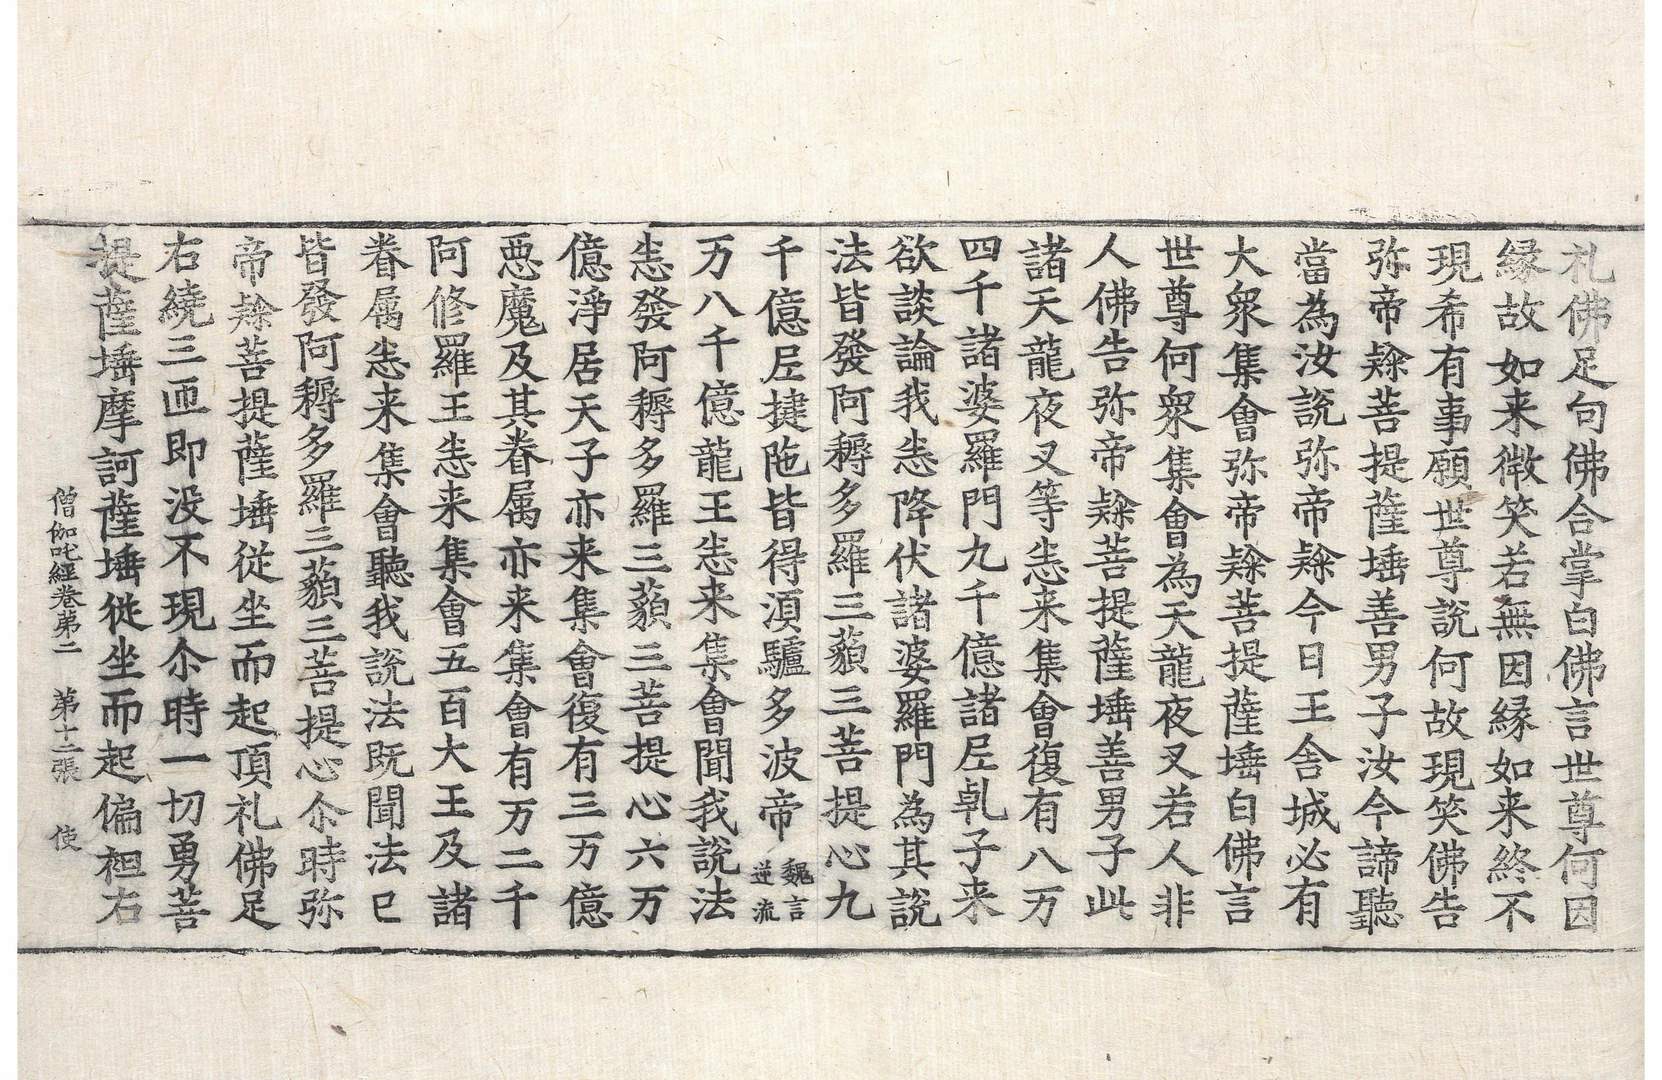 礼佛足句佛合掌白佛言世尊何因
縁故如来微笑若無因縁如来終不
現希有事願世尊說何故現笑佛告
弥帝𨽻菩提薩埵善男子汝今諦聽
當為汝說弥帝𨽻今日王舍城必有
大衆集會弥帝𨽻菩提薩埵白佛言
世尊何衆集會為天龍夜叉若人非
人佛告弥帝𨽻菩提薩埵善男子此
諸天龍夜叉等悉来集會復有八万
四千諸婆羅門九千億諸尼乹子来
欲談論我悉降伏諸婆羅門為其說
法皆發阿耨多羅三藐三菩提心九
千億尼揵陁皆得湏驢多波帝魏言逆流
万八千億龍王悉来集會聞我說法
悉發阿耨多羅三藐三菩提心六万
億淨居天子亦来集會復有三万億
惡魔及其眷属亦来集會有万二千
阿修羅王悉来集會五百大王及諸
眷属悉来集會聽我說法既聞法已
皆發阿耨多羅三藐三菩提心尒時弥
帝𨽻菩提薩埵従坐而起頂礼佛足
右繞三匝即没不現尒時一切勇菩
提薩埵摩訶薩埵従坐而起偏袒右
僧伽吒經卷第二 第十二張 使